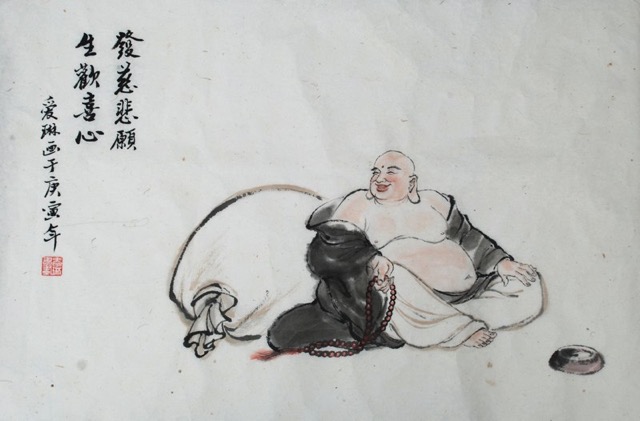 發慈悲願
生歡喜心
爱琳画于庚寅年